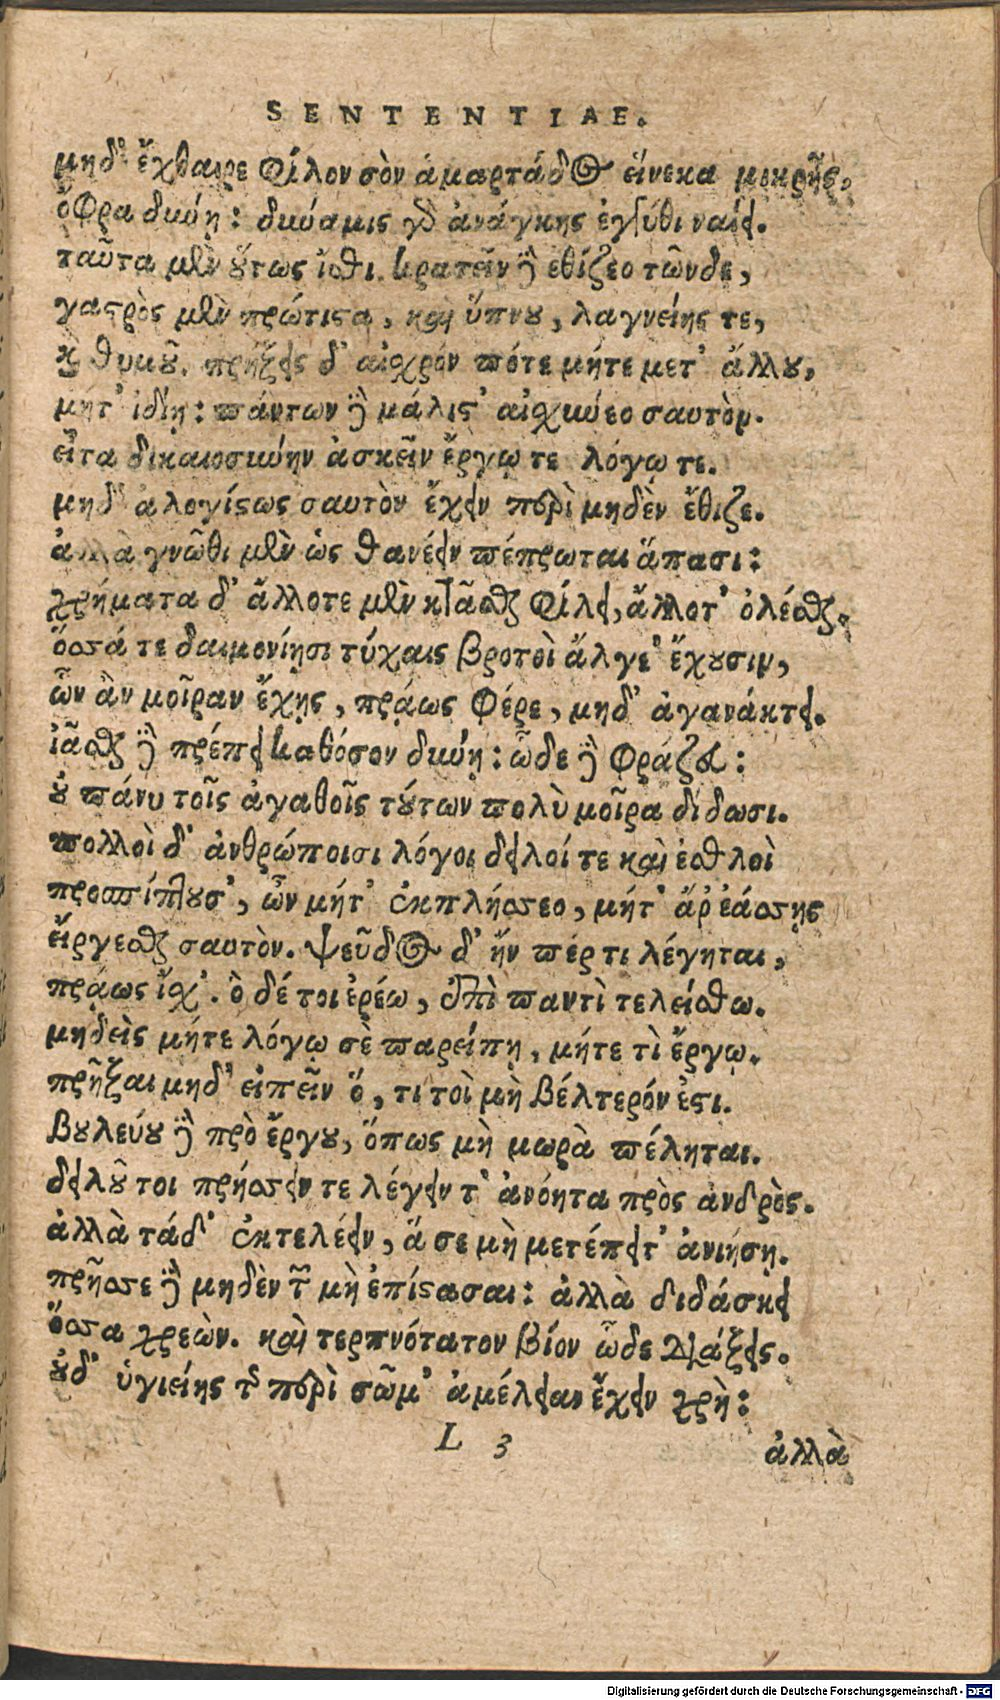 SENTENTIAE.
μηδ' ἔχθαιρε φίλον σὸν ἁμαρτάδος εἵνεκα μικρῆς,
ὄφρα δύνῃ: δύναμις γὰρ ἀνάγκης ἐγγύθι ναίει.
ταῦτα μὲν οὕτως ἴσθι. κρατεῖν δὲ ἐθίζεο τῶνδε,
γαστρὸς μὲν πρώτιστα, καὶ ὕπνου, λαγνείης τε,
καὶ θυμοῦ. πρήξεις δ' αἰσχρόν ποτε μήτε μετ' ἄλλου,
μήτ' ἰδίῃ: πάντων δὲ μάλιστ' αἰσχύνεο σαυτὸν.
εἶτα δικαιοσύνην ἀσκεῖν ἔργῳ τε λόγῳ τε.
μηδ' ἀλογίστως σαυτὸν ἔχειν περὶ μηδὲν ἔθιζε.
ἀλλὰ γνῶθι μὲν ὡς θανέειν πέπρωται ἅπασι:
χρήματα δ' ἄλλοτε μὲν κτᾶσθαι φίλει, ἄλλοτ' ὀλέσθαι.
ὅσσά τε δαιμονίῃσι τύχαις βροτοὶ ἄλγε' ἔχουσιν,
ὧν ἂν μοῖραν ἔχῃς, πρᾴως φέρε, μηδ' ἀγανάκτει.
ἰᾶσθαι δὲ πρέπει καθόσον δύνῃ: ὧδε δὲ φράζευ:
οὐ πάνυ τοῖς ἀγαθοῖς τούτων πολὺ μοῖρα δίδωσι.
πολλοὶ δ' ἀνθρώποισι λόγοι δειλοί τε καὶ ἐσθλοὶ
προσπίπτουσ', ὧν μήτ' ἐκπλήσσεο, μήτ' ἄρ' ἐάσσῃς
εἴργεσθαι σαυτὸν. ψεῦδος δ' ἤν πέρ τι λέγηται,
πρᾴως ἴσχ'. ὃ δέ τοι ἐρέω, ἐπὶ παντὶ τελείσθω.
μηδεὶς μήτε λόγῳ σὲ παρείπῃ, μήτε τὶ ἔργῳ.
πρῆξαι μηδ' εἰπεῖν ὅ, τι τοὶ μὴ βέλτερόν ἐστι.
βουλεύου δὲ πρὸ ἔργου, ὅπως μὴ μωρὰ πέληται.
δειλοῦ τοι πρήσσειν τε λέγειν τ' ἀνόητα πρὸς ἀνδρὸς.
ἀλλὰ τάδ' ἐκτελέειν, ἅ σε μὴ μετέπειτ' ἀνιήσῃ.
πρῆσσε δὲ μηδὲν τῶν μὴ ἐπίστασαι: ἀλλὰ διδάσκει
ὅσσα χρεών. καὶ τερπνότατον βίον ὧδε διάξεις.
οὐδ' ὑγιείης τῆς περὶ σῶμ' ἀμέλειαν ἔχειν χρὴ:
L 3
ἀλλὰ
Digitalisierung gefördert durch die Deutsche Forschungsgemeinschaft - DFG